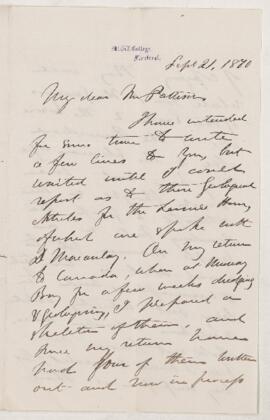 McGill College,
Montreal.
Sept 21, 1870
My dear Mr Pattison
I have intended
for some time to write
a few lines to you, but
waited until I could
report as to those Geological
Articles for the Leisure Hour,
of which we spoke with
Dr Macaulay. On my return
to Canada, when at Murray
Bay for a few weeks dredging
& geologising, I prepared a
skeleton of them, and
since my return home
had four of them written
out and now in process